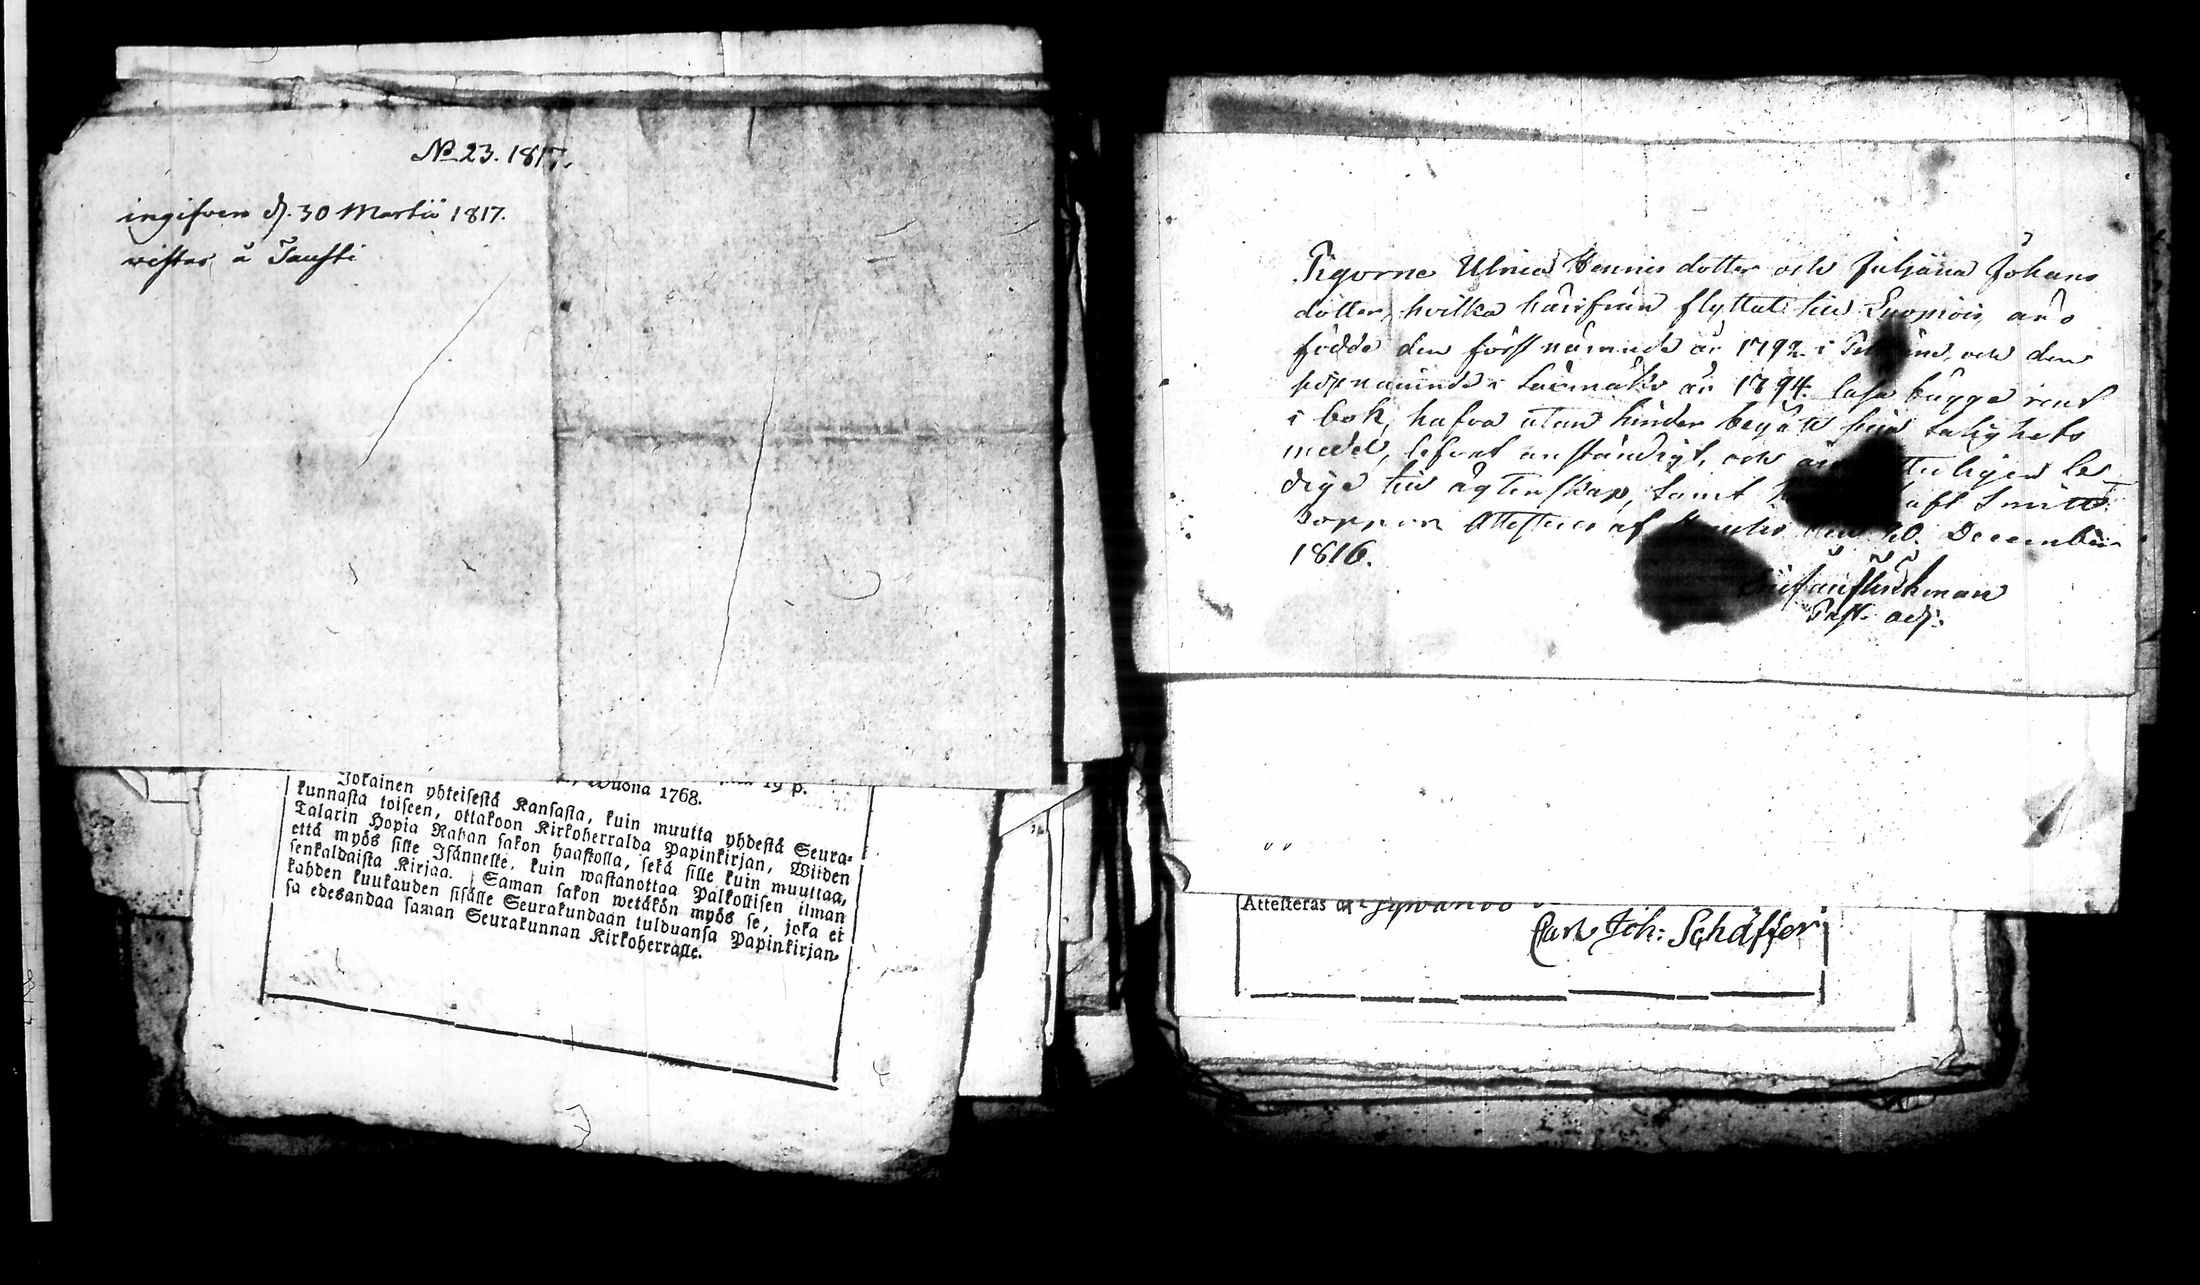 No 23. 1817.
ingifven d. 30 Martii 1817.
vistas å Tausti
Wuona 1768. 19 p.
Jokainen yhteisestä Kansasta, kuin muutta yhdestä Seura-
kunnasta toiseen, ottakoon Kirkoherralda Papinkirjan, Wiiden
Talarin Hopia Rahan sakon haastolla, sekä sille kuin muuttaa,
että myös sille Isännelle, kuin wastanottaa Palkollisen ilman
senkaldaista Kirjaa. Saman sakon wetäkön myös se, joka ei
kahden kuukauden sisälle Seurakundaan tulduansa Papinkirjan-
sa edesandaa saman Seurakunnan Kirkoherralle.
Pigorne Ulrica dotter och Juliana Johans
dotter, hvilka härifrån flyttat till äro
födde den förstnämnde år 1792 i och den
sistnämnde i år 1794. läsa bägge rent
i bok, hafva utan hinder begått sina salighets
medel, lefvat anständigt, och le-
dige till ägtenskap, samt haft Smitt
koppor. Attesteras af den 20. December
1816.
Past. adj.
Attesteras
Carl Joh: Schäffer